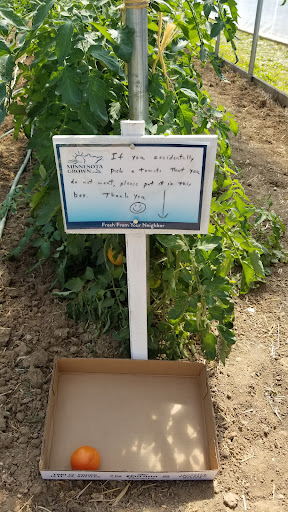 MINNESOTA
GROWN
If you accidentally
pick a tomato that you
do not want, please put it in this
box. Thank you
Fresh From Your Neighbor